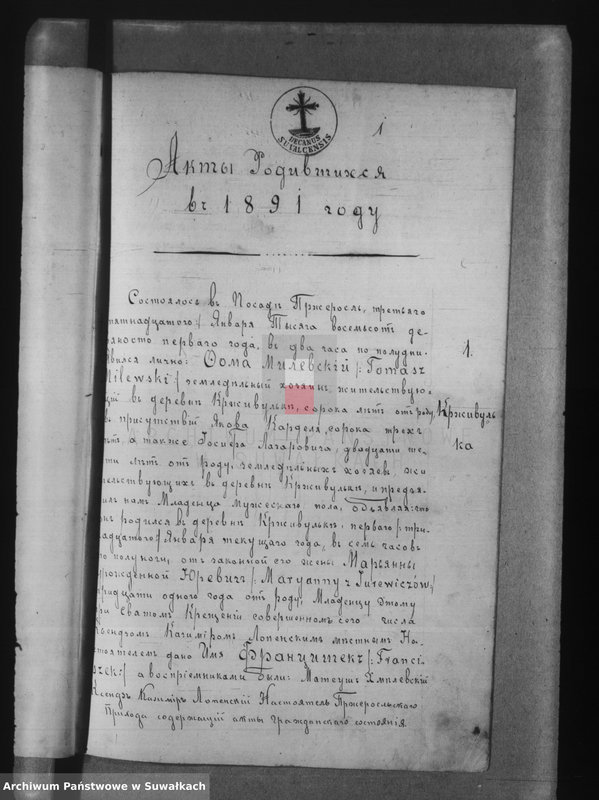 1
DECANUS SUVALCENSIS
Акты Родившихся
въ 1891 году
Состоялось въ Посадѣ Пржеросль, третьяго
пятнадцатого/ Января Тысяча восемьсотъ де-
вяносто перваго года, въ два часа по полудни
явился лично: Ѳома Милевскій /: Tomasz
Milewski :/ земледѣльный хозяинъ жительствую-
щій въ деревнѣ Крживулькѣ, сорока лѣтъ отъ роду,
въ присутствіи Якова Карделя, сорока трехъ
лѣтъ, а также Іосифа Лазаровича, двадцати ше-
сти лѣтъ отъ роду, земледѣльныхъ хозяевъ, жи-
тельствующихъ въ деревнѣ Крживулькѣ, и предъя-
вилъ намъ Младенца Мужескаго пола, объявляя что
онъ родился въ деревнѣ Крживулькѣ, перваго /: три-
надцатого :/ Января текущаго года, въ семь часовъ
по полуночи, отъ законной его жены Марьянны
урожденной Юревичъ /: Maryanny z Jurewiczów :/
тридцати одного года отъ роду; Младенцу этому
при Святомъ Крещеніи совершенномъ сего числа
Ксендзомъ Казиміромъ Лопенскимъ мѣстнымъ На-
стоятелемъ дано Имя Францишекъ /: Franci-
szek :/ а воспріемниками были: Матеушъ Хмѣлевскій
Ксендзъ Казиміръ Лопенскій Настоятель Пржеросльскаго
Прихода содержащій акты гражданскаго состоянія
1.
Крживуль
ка
Archiwum Państwowe w Suwałkach